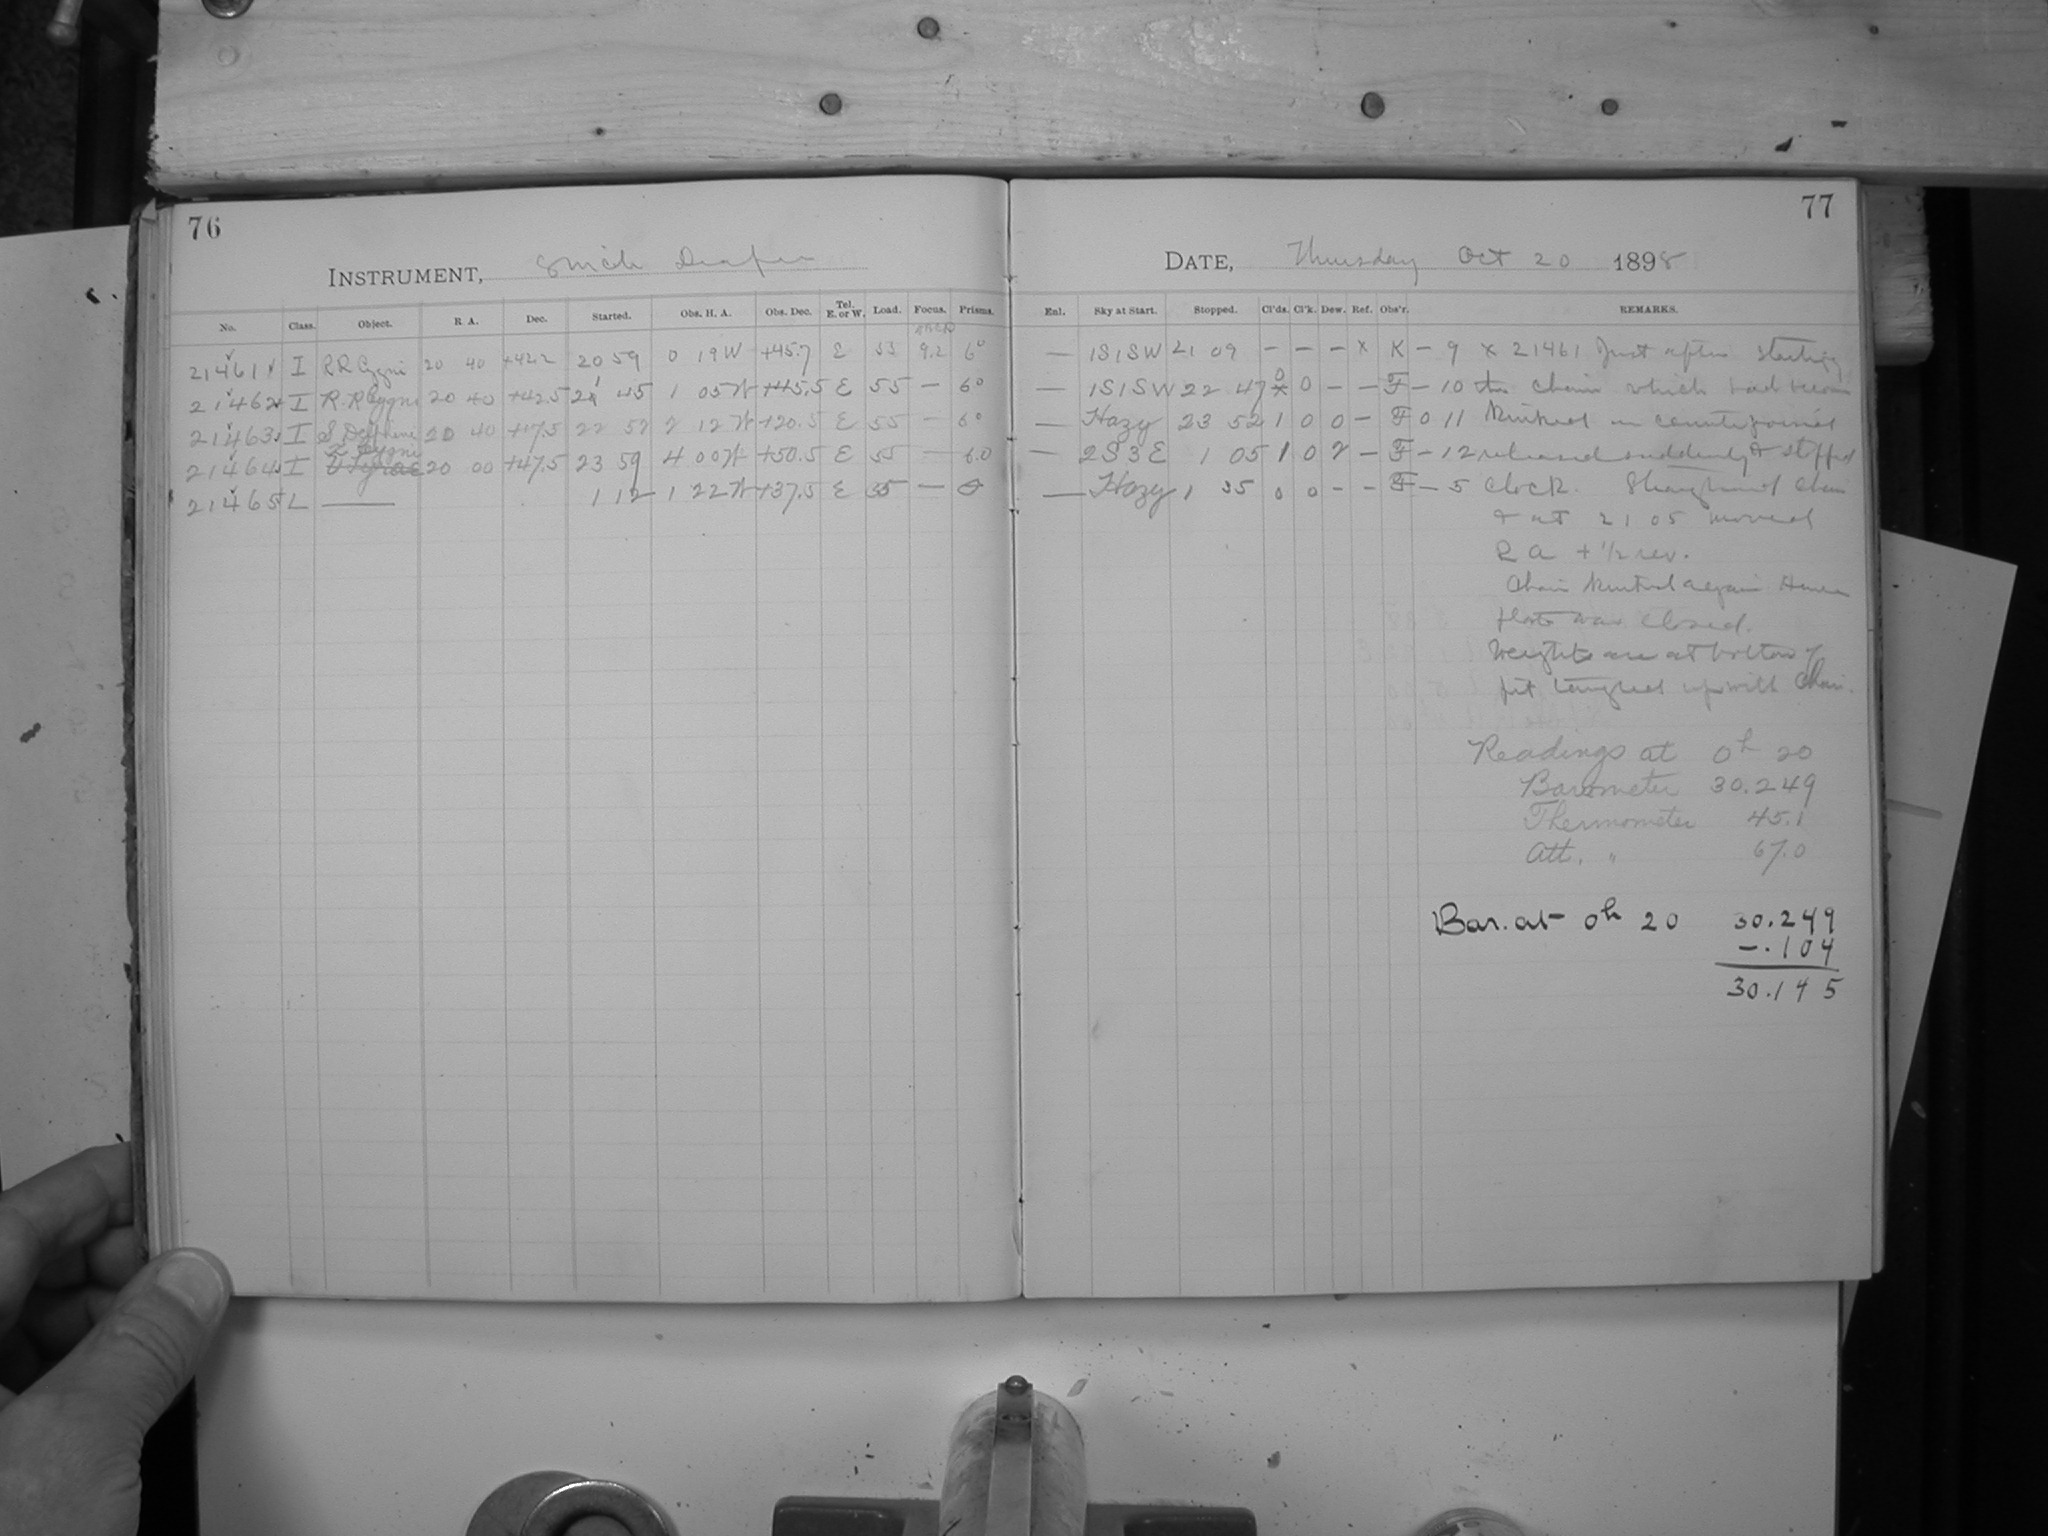 76
INSTRUMENT, 8 inch Draper
No. Class. Object. R. A. Dec. Started. Obs. H. A. Obs. Dec. Tel. E. or W. Load. Focus. Prisms.
21461 I RR Cygni 20 40 +42.2 20 59 0 19 W +45.7 E 53 9.2 6°
21462 I R.R Cygni 20 40 +42.5 21 45 1 05 W +45.5 E 55 — 6°
21463 I S Delphini 20 40 +17.5 22 52 2 12 W +20.5 E 55 — 6°
21464 I Cygni 20 00 +47.5 23 59 4 00 W +50.5 E 55 — 6.0
21465 L —— 1 12 1 22 W +37.5 E 55 — 0
77
DATE, Thursday Oct 20 1898
Enl. Sky at Start. Stopped. Cl'ds. Cl'k. Dew. Ref. Obs'r. REMARKS.
— 1S1SW 21 09 – – – x K – 9 x 21461 Just after starting
— 1S1SW 22 47 0 0 – – F – 10 the chain which had become
— Hazy 23 52 1 0 0 – F 0 11 kinked in counterpoised
— 2S3E 1 05 1 0 2 – F – 12 released suddenly & stopped
— Hazy 1 35 0 0 – – F – 5 clock. Straightened chain
& at 21 05 moved
R A + 1/2 rev.
Chain kinked again Hence
plate was closed.
Weights are at bottom of
pit tangled up with chain.
Readings at 0h 20
Barometer 30.249
Thermometer 45.1
Att. " 67.0
Bar. at 0h 20 30.249
– .104
30.145